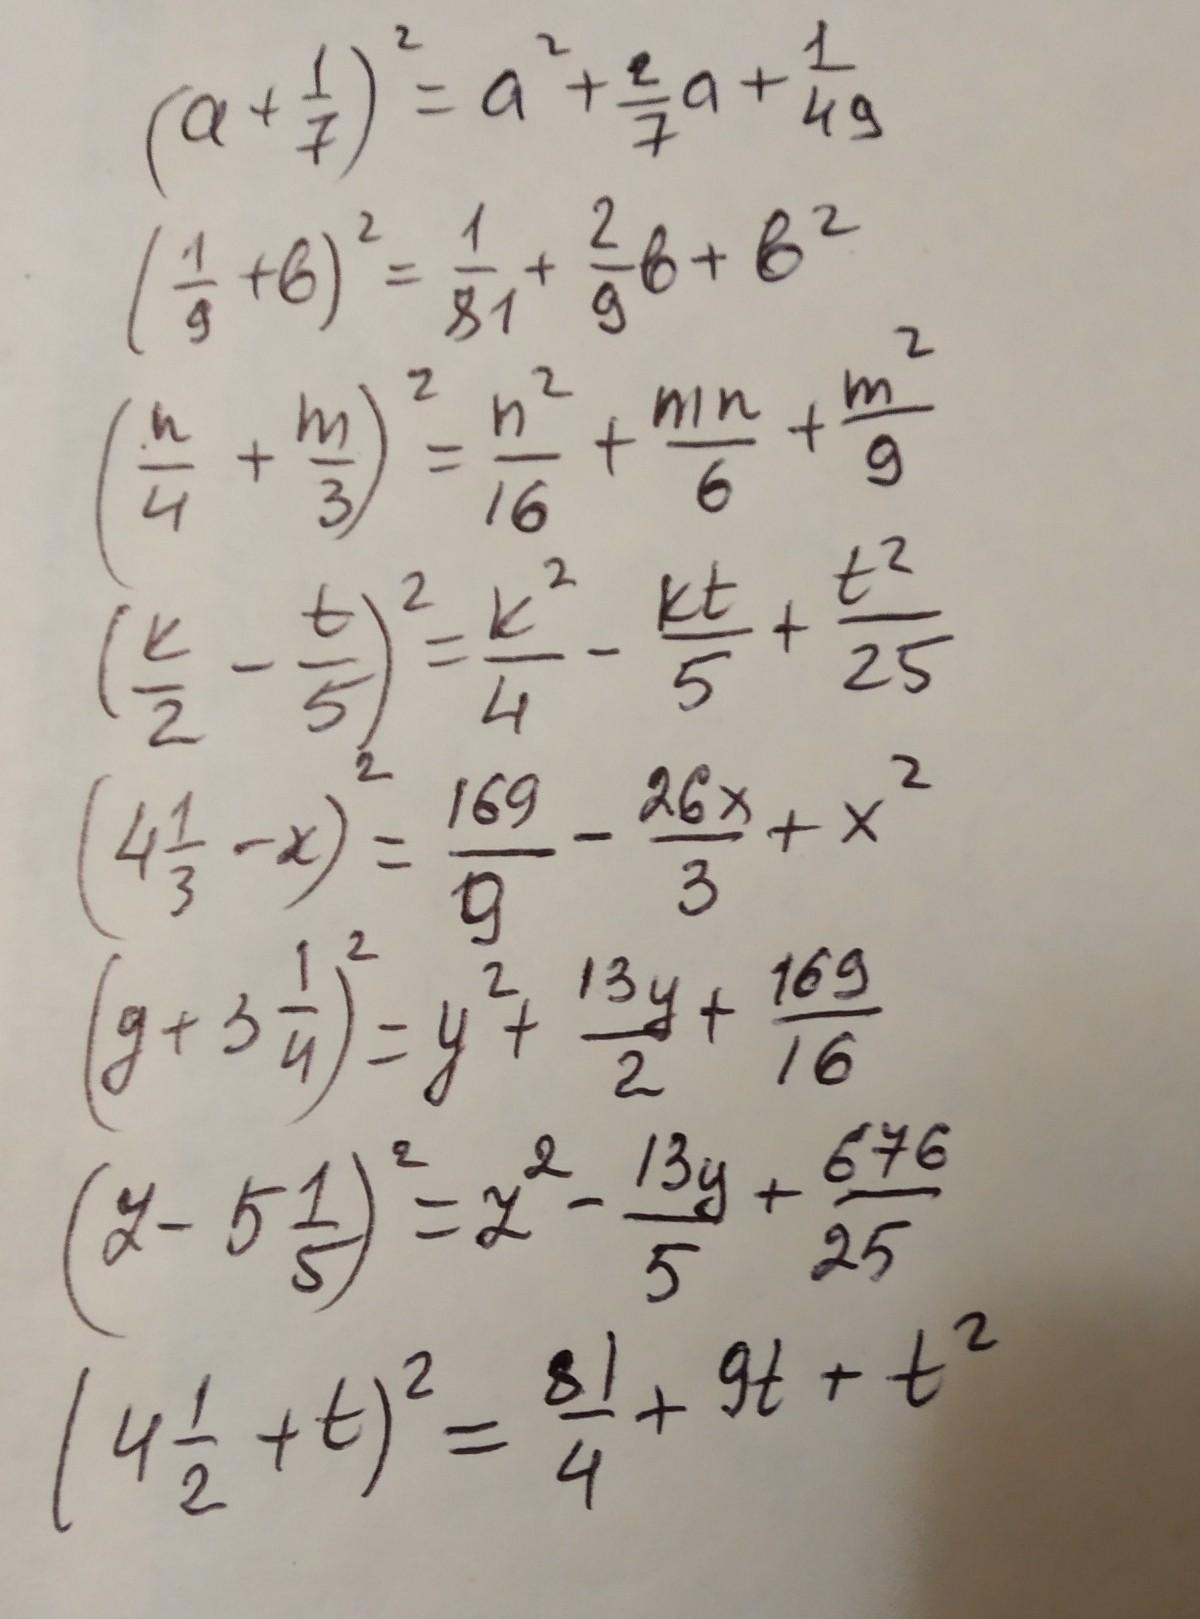 (a + 1/7)² = a² + 2/7 a + 1/49
(1/9 + в)² = 1/81 + 2/9 в + в²
(n/4 + m/3)² = n²/16 + mn/6 + m²/9
(k/2 − t/5)² = k²/4 − kt/5 + t²/25
(4 1/3 − x)² = 169/9 − 26x/3 + x²
(y + 3 1/4)² = y² + 13y/2 + 169/16
(z − 5 1/5)² = z² − 13y/5 + 676/25
(4 1/2 + t)² = 81/4 + 9t + t²